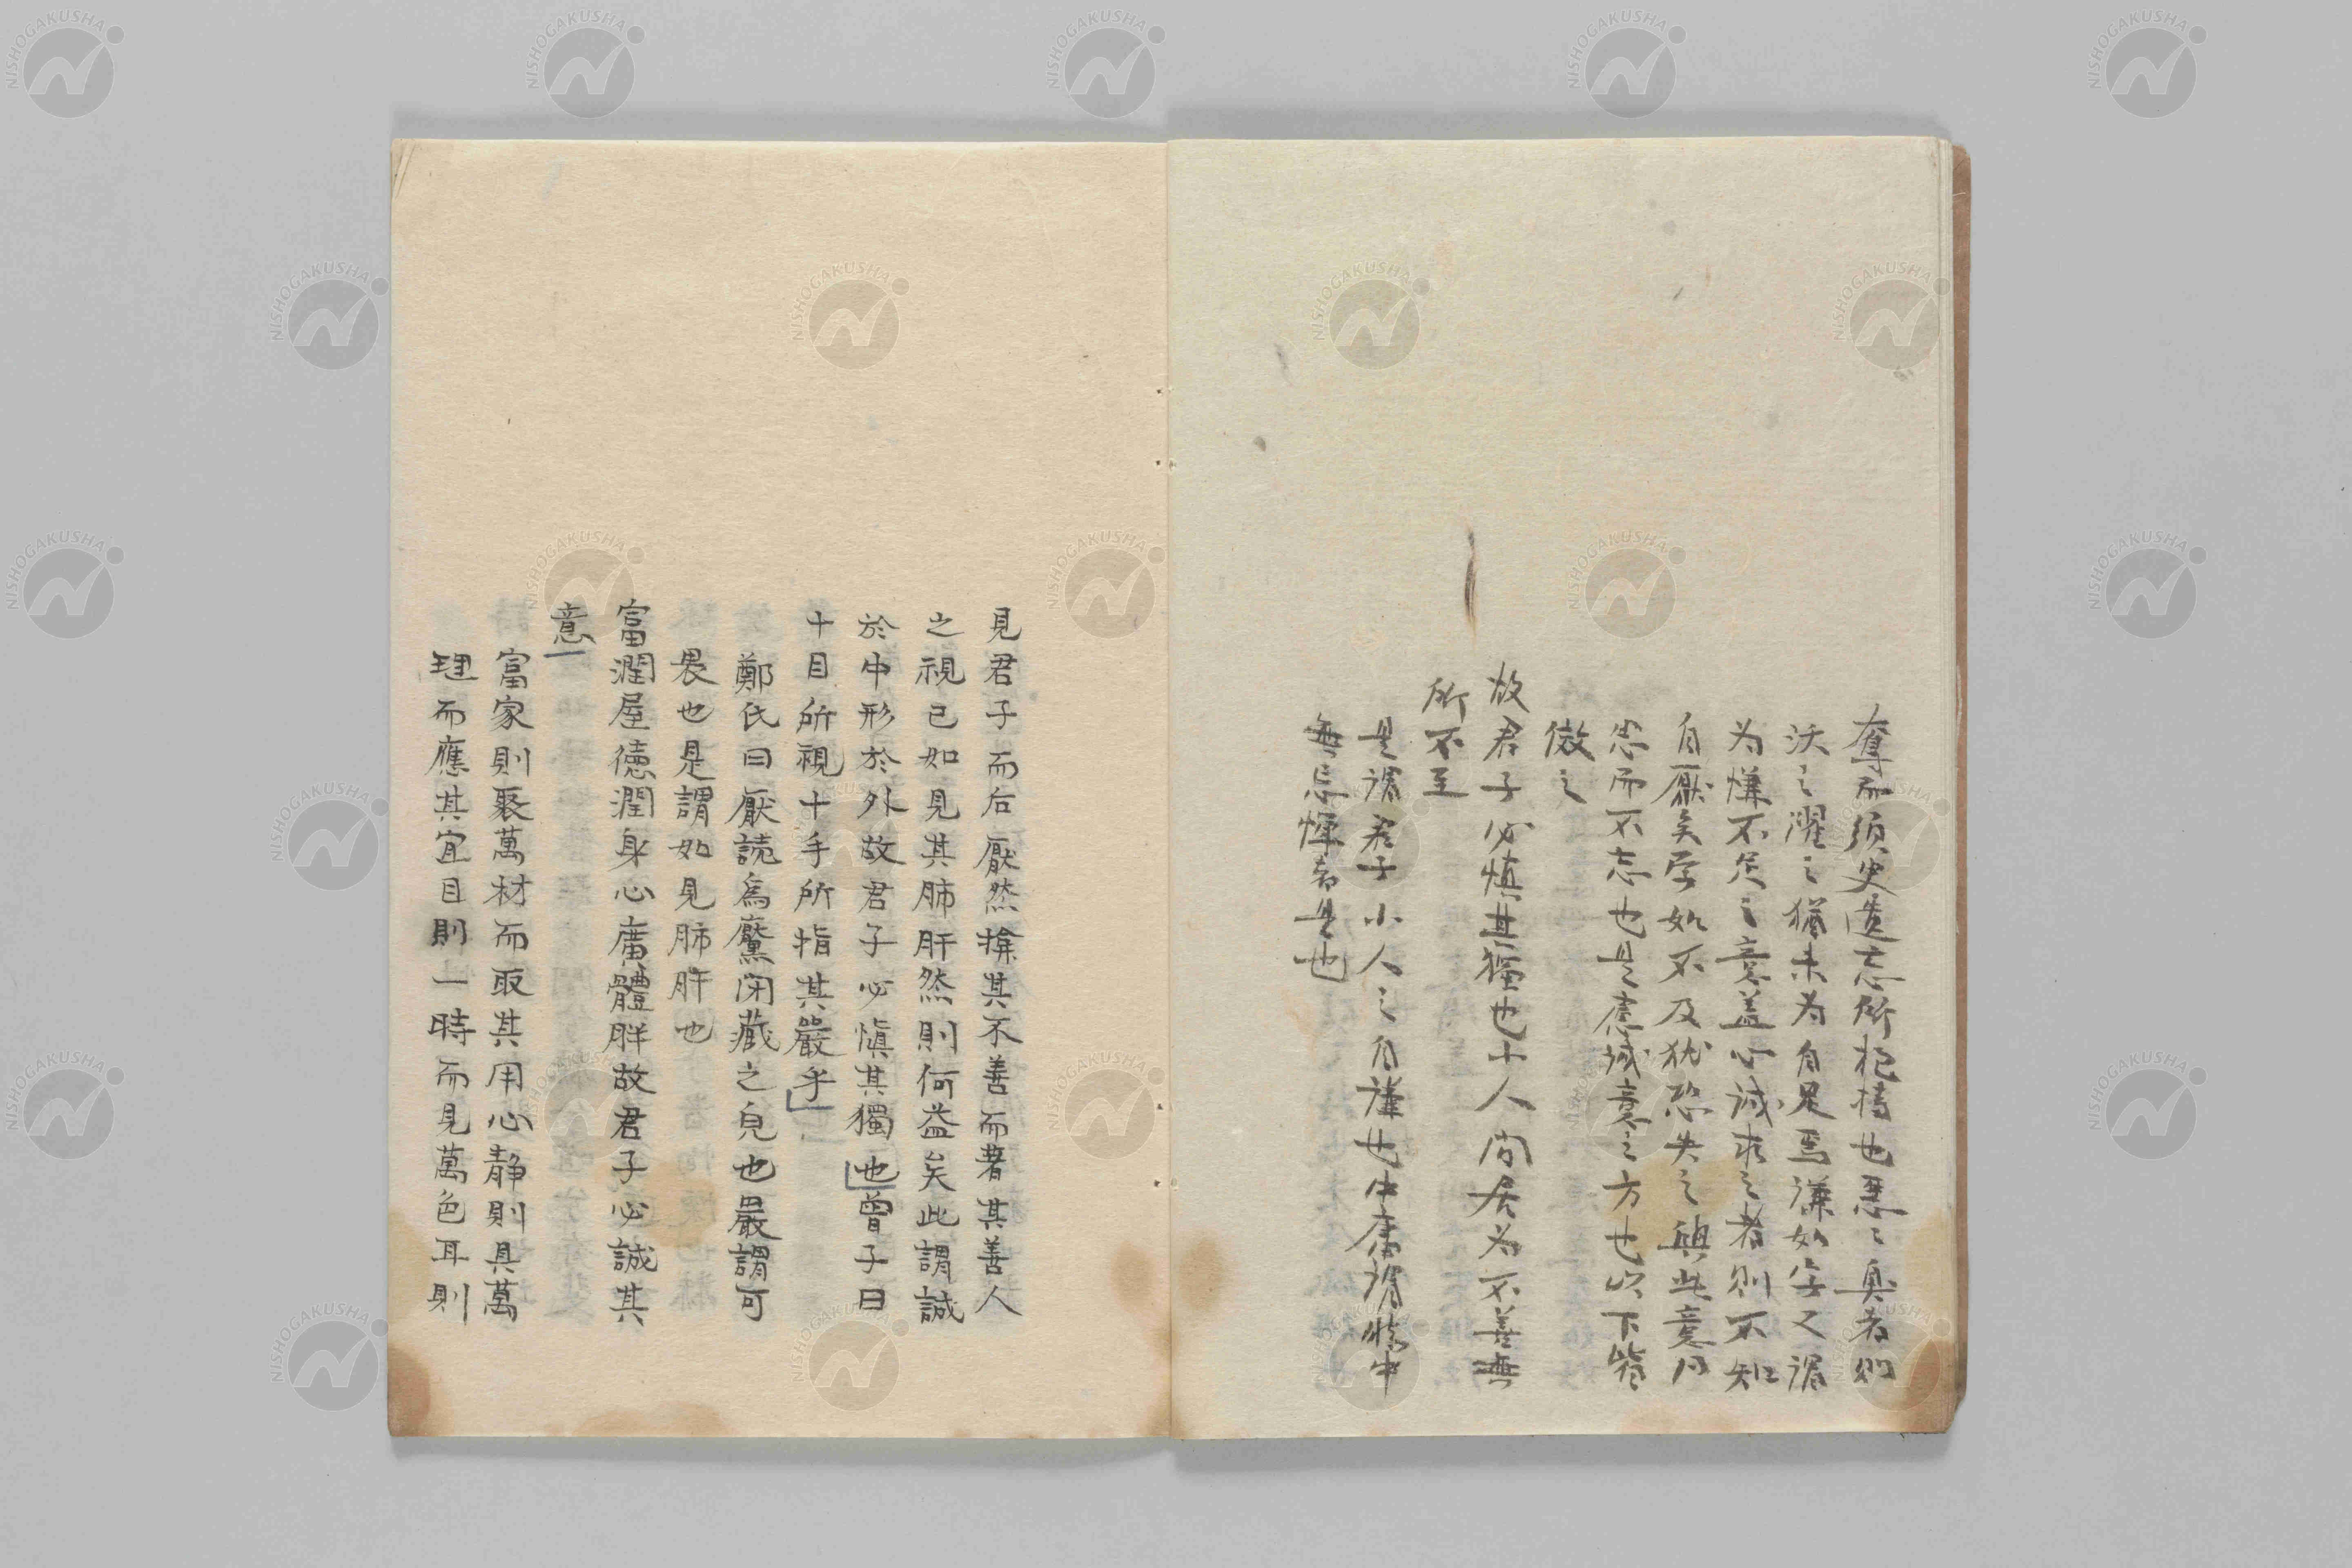 奪而須臾遺忘所把持也惡〻臭者則
沃之濯之猶未為自足焉謙如字又謂
為慊不足之意盖心誠求之者則不知
自厭矣学如不及犹恐失之與此意同
而不忘也是應誠意之方也以下皆
倣之
故君子必慎其獨也小人間居為不善無
所不至
是謂君子小人之自謙也中庸謂時中
無忌憚者是也
見君子而后厭然揜其不善而著其善人
之視己如見其肺肝然則何益矣此謂誠
於中形於外故君子必愼其獨也曾子曰
十目所視十手所指其嚴乎
鄭氏曰厭読爲黶閉藏之皃也嚴謂可
畏也是謂如見肺肝也
富潤屋德潤身心廣體胖故君子必誠其
意
富家則聚萬材而取其用心静則具萬
理而應其宜目則一時而見萬色耳則
NISHOGAKUSHA